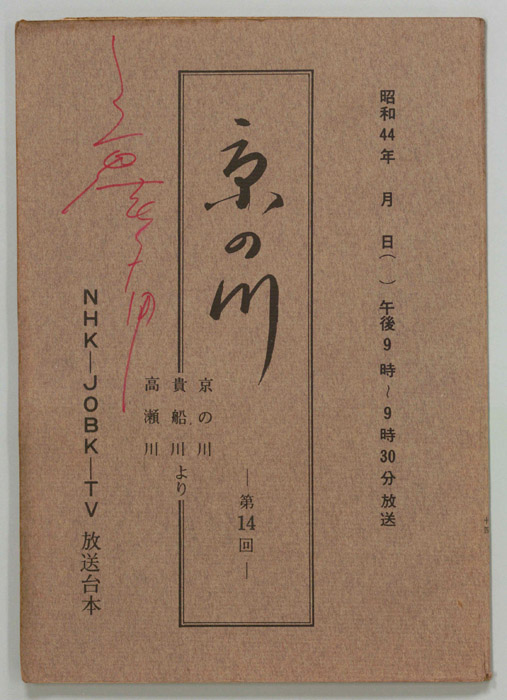 昭和44年　月　日(　)午後9時~9時30分放送
京の川
―第14回―
京の川
貴船川より
高瀬川
NHK―JOBK―TV 放送台本